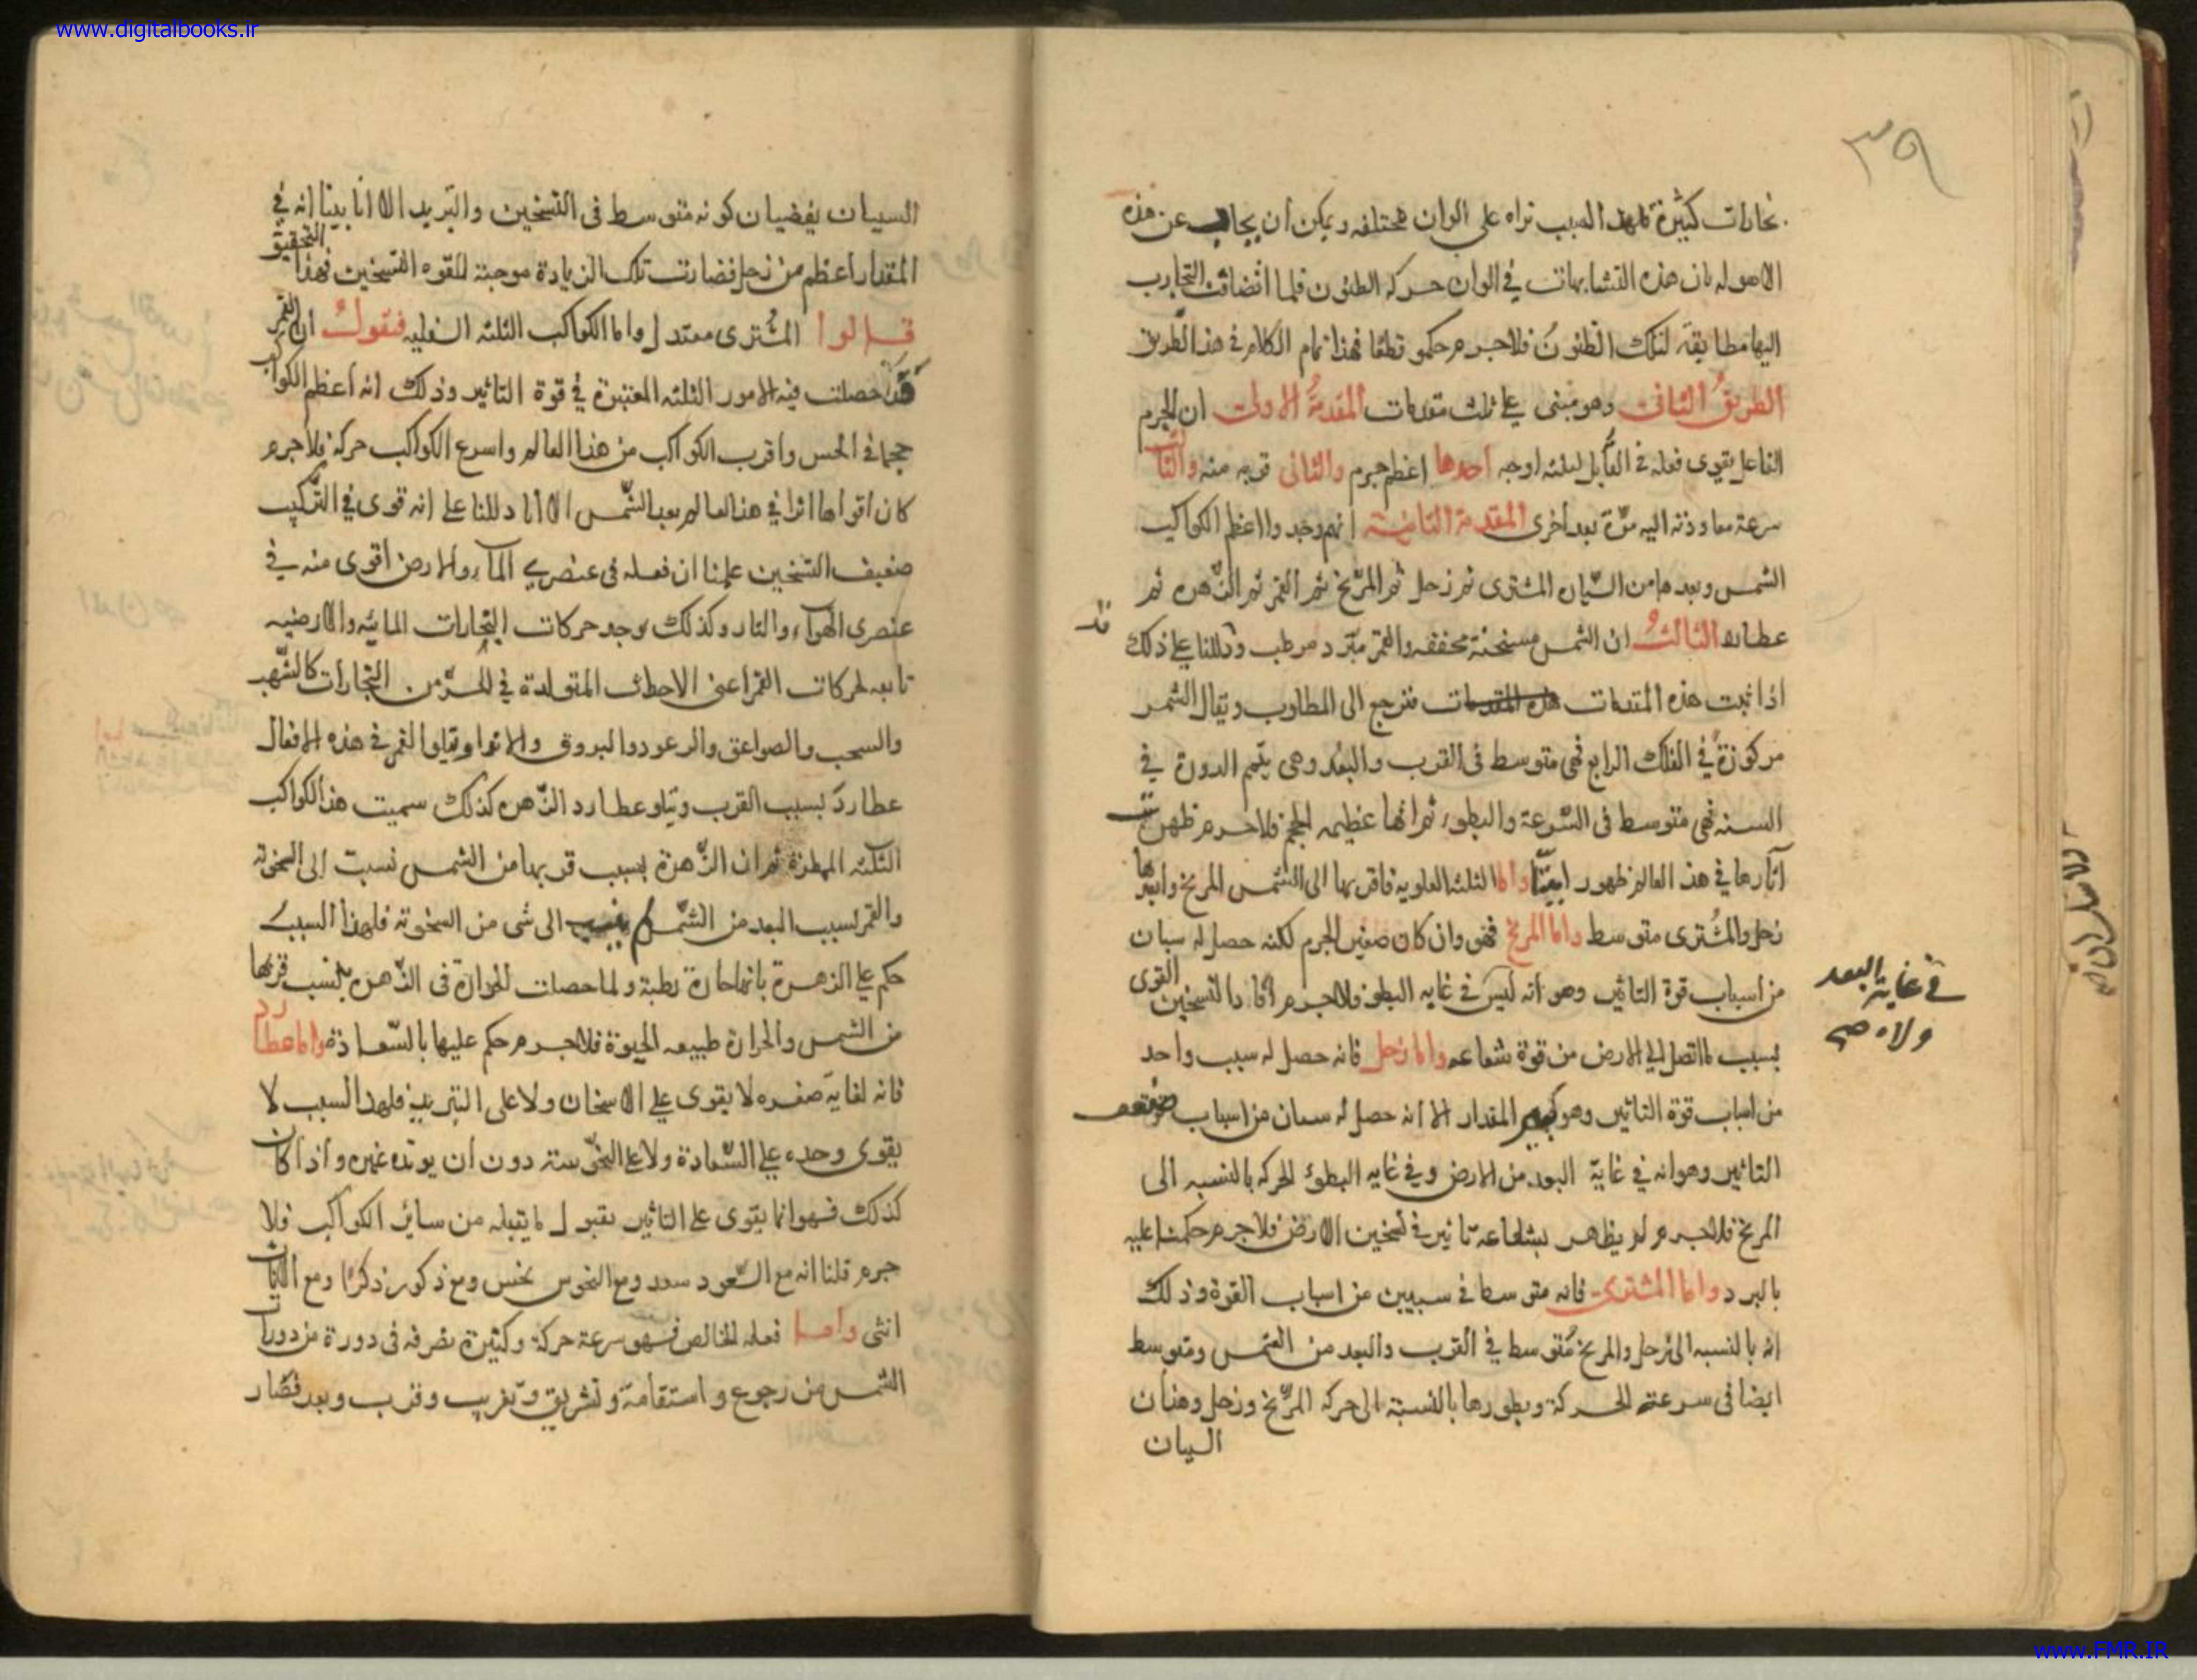 www.digitalbooks.ir
٣٩
بخارات كثيرة فلهذا السبب تراه على الوان مختلفه ويمكن ان يجاب عن هذه
الاسوله بان هذه التشابهات في الوان حركة الظنون فلما انضافت التجارب
اليها مطابقة لتلك الظنون فلاجرم حكمو قطعا فهذا تمام الكلام في هذا الطريق
الطريق الثاني وهو مبنى على ثلث مقدمات المقدمة الاولى ان الجرم
الفاعل يقوى فعله في القابل لثلثه اوجه احدها اعظم جرم والثانى قربه منه والثالث
سرعة معاودته اليه مرة بعد أخرى المقدمة الثانية انهم وجدوا اعظم الكواكب
الشمس وبعدها من السيارات المشترى ثم زحل ثم المريخ ثم القمر ثم الزهره ثم
عطارد الثالث ان الشمس مسخنة مجففه والقمر مبرد مرطب وقد دللنا على ذلك
اذا ثبت هذه المقدمات هذه المقدمات فنرجع الى المطلوب ويقال الشمس
مركوزة في الفلك الرابع فهى متوسط في القرب والبعد وهى يتمم الدورة في
السنه فهى متوسط فى السرعة والبطوء ثم انها عظيمه الحجم فلاجرم ظهرت
آثارها في هذ العالم ظهورا بينا واما الثلثه العلويه فاقربها الى الشمس المريخ وابعدها
زحل والمشترى متوسط واما المريخ فهو وان كان صغير الجرم لكنه حصل له سببان
من اسباب قوة التاثير وهو انه ليس فى غايه البطوء فلاجرم افاد التسخين القوى
في غاية البعد
ولا ه صح
بسبب ما اتصل الى الارض من قوة شعاعه واما زحل فانه حصل له سبب واحد
من اسباب قوة التاثير وهو كبر المقدار الا انه حصل له سببان من اسباب ضعف
التاثير وهو انه في غاية البعد من الارض وفي غايه البطوء الحركه بالنسبه الى
المريخ فلاجرم لم يظهر لشعاعه تاثير في تسخين الارض فلاجرم حكمنا عليه
بالبرد واما المشترى فانه متوسط في سببين من اسباب القوة وذلك
انه بالنسبه الى زحل والمريخ متوسط في القرب والبعد من الشمس ومتوسط
ايضا فى سرعة الحركة وبطورها بالنسبة الى حركه المريخ وزحل وهذان
السببان
السببان يقضيان كونه متوسط فى التسخين والتبريد الا انا بينا انه في التحقيق
المقدار اعظم من زحل فصارت تلك الزيادة موجبة للقوه التسخين فهذا
قالوا المشترى معتدل واما الكواكب الثلثه السفليه فنقول ان القمر
قد حصلت فيه الامور الثلثه المعتبرة في قوة التاثير وذلك انه اعظم الكواكب
حجما في الحس واقرب الكواكب من هذا العالم واسرع الكواكب حركة فلاجرم
كان اقواها اثرا في هذ العالم بعد الشمس الا انا دللنا على انه قوى في التركيب
ضعيف التسخين علمنا ان فعله فى عنصرى الماء والارض اقوى منه في
عنصرى الهواء والنار وكذلك يوجد حركات البخارات المائيه والارضيه
تابعه لحركات القمر اعنى الاحداث المتولدة في الجو من البخارات كالشهب
والسحب والصواعق والرعود والبروق والانوا ويتلوا القمر فى هذه الافعال
عطارد بسبب القرب ويتلو عطارد الزهره كذلك سميت هذ الكواكب
الثلثه الممطرة ثم ان الزهرة بسبب قربها من الشمس نسبت الى السخونة
والقمر لسبب البعد من الشمس لم ينسب الى شى من السخونة فلهذا السبب
حكم على الزهرة بانها حارة رطبة ولما حصلت الحرارة فى الزهره بسبب قربها
من الشمس والحرارة طبيعه الحيوة فلاجرم حكم عليها بالسعادة واما عطارد
فانه لغاية صغره لا يقوى على الاسخان ولا على التبريد فلهذ السبب لا
يقوى وحده على السعادة ولا على النحوسة دون ان يويده غيره واذا كان
كذلك فهو انما يقوى على التاثير بقبول ما يقبله من سائر الكواكب فلا
جرم قلنا انه مع السعود سعد ومع النحوس نحس ومع ذكور ذكرا ومع الاناث
انثى واما فعله الخالص فهو سرعة حركة وكثيرة تصرفه فى دورة من دورات
الشمس من رجوع واستقامة وتشريق وتغريب وقرب وبعد فصار
www.FMR.IR